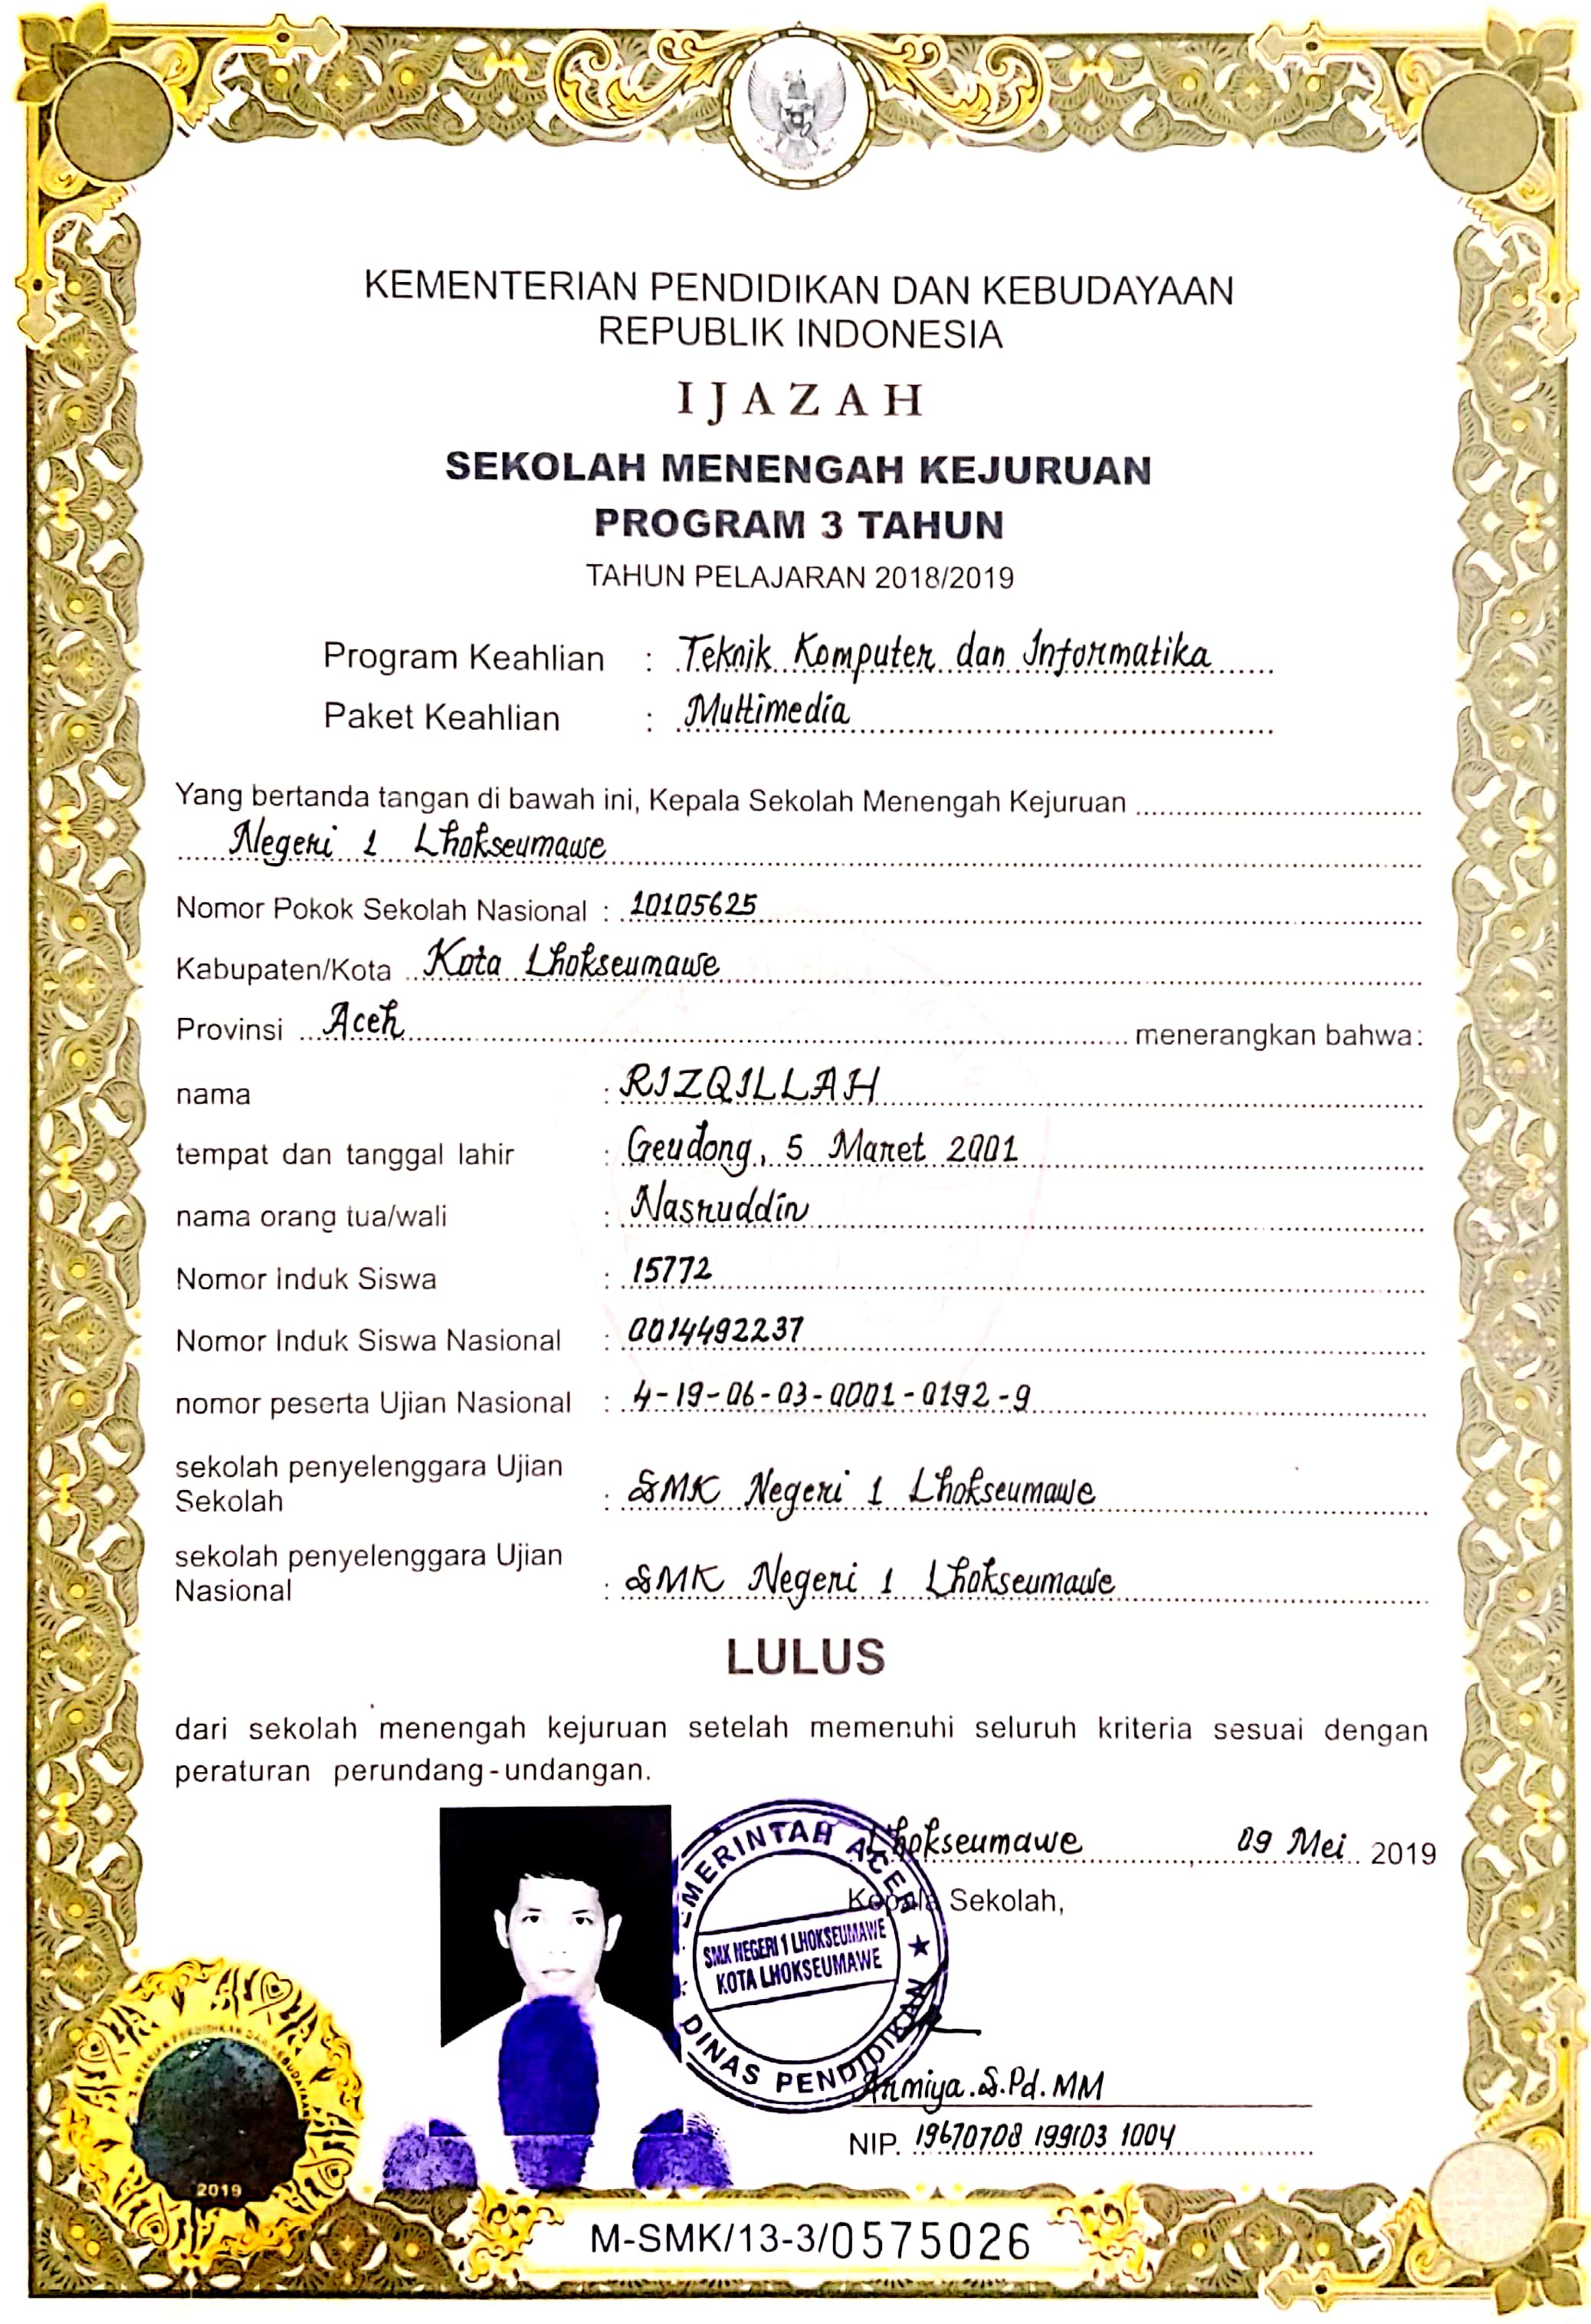 KEMENTERIAN PENDIDIKAN DAN KEBUDAYAAN
REPUBLIK INDONESIA
IJAZAH
SEKOLAH MENENGAH KEJURUAN
PROGRAM 3 TAHUN
TAHUN PELAJARAN 2018/2019
Program Keahlian : Teknik Komputer dan Informatika
Paket Keahlian : Multimedia
Yang bertanda tangan di bawah ini, Kepala Sekolah Menengah Kejuruan
Negeri 1 Lhokseumawe
Nomor Pokok Sekolah Nasional : 10105625
Kabupaten/Kota Kota Lhokseumawe
Provinsi Aceh menerangkan bahwa:
nama : RIZQILLAH
tempat dan tanggal lahir : Geudong, 5 Maret 2001
nama orang tua/wali : Nasruddin
Nomor Induk Siswa : 15772
Nomor Induk Siswa Nasional : 0014492237
nomor peserta Ujian Nasional : 4-19-06-03-0001-0192-9
sekolah penyelenggara Ujian
Sekolah : SMK Negeri 1 Lhokseumawe
sekolah penyelenggara Ujian
Nasional : SMK Negeri 1 Lhokseumawe
LULUS
dari sekolah menengah kejuruan setelah memenuhi seluruh kriteria sesuai dengan
peraturan perundang-undangan.
Lhokseumawe, 09 Mei 2019
Kepala Sekolah,
PEMERINTAH ACEH
SMK NEGERI 1 LHOKSEUMAWE
KOTA LHOKSEUMAWE
DINAS PENDIDIKAN
Armiya.S.Pd.MM
NIP. 19670708 199103 1004
PENDIDIKAN DAN KEBUDAYAAN
2019
M-SMK/13-3/0575026